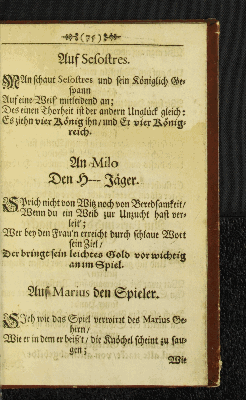 (75)
Auf Sesostres.
MAn schaut Sesostres und sein Königlich Ge-
spann
Auf eine Weis' mitleidend an;
Des einen Thorheit ist der andern Unglück gleich:
Es ziehn vier König ihn/ und Er vier König-
reich.
An Milo
Den H--- Jäger.
SPrich nicht von Witz noch von Beredsamkeit/
Wenn du ein Weib zur Unzucht hast ver-
leit';
Wer bey den Frau'n erreicht durch schlaue Wort
sein Ziel/
Der bringt sein leichtes Gold vor wichtig
an im Spiel.
Auf Marius den Spieler.
SIeh wie das Spiel verwirrt des Marius Ge-
hirn/
Wie er in dem er beißt/ die Knöchel scheint zu sau-
gen;
Wie